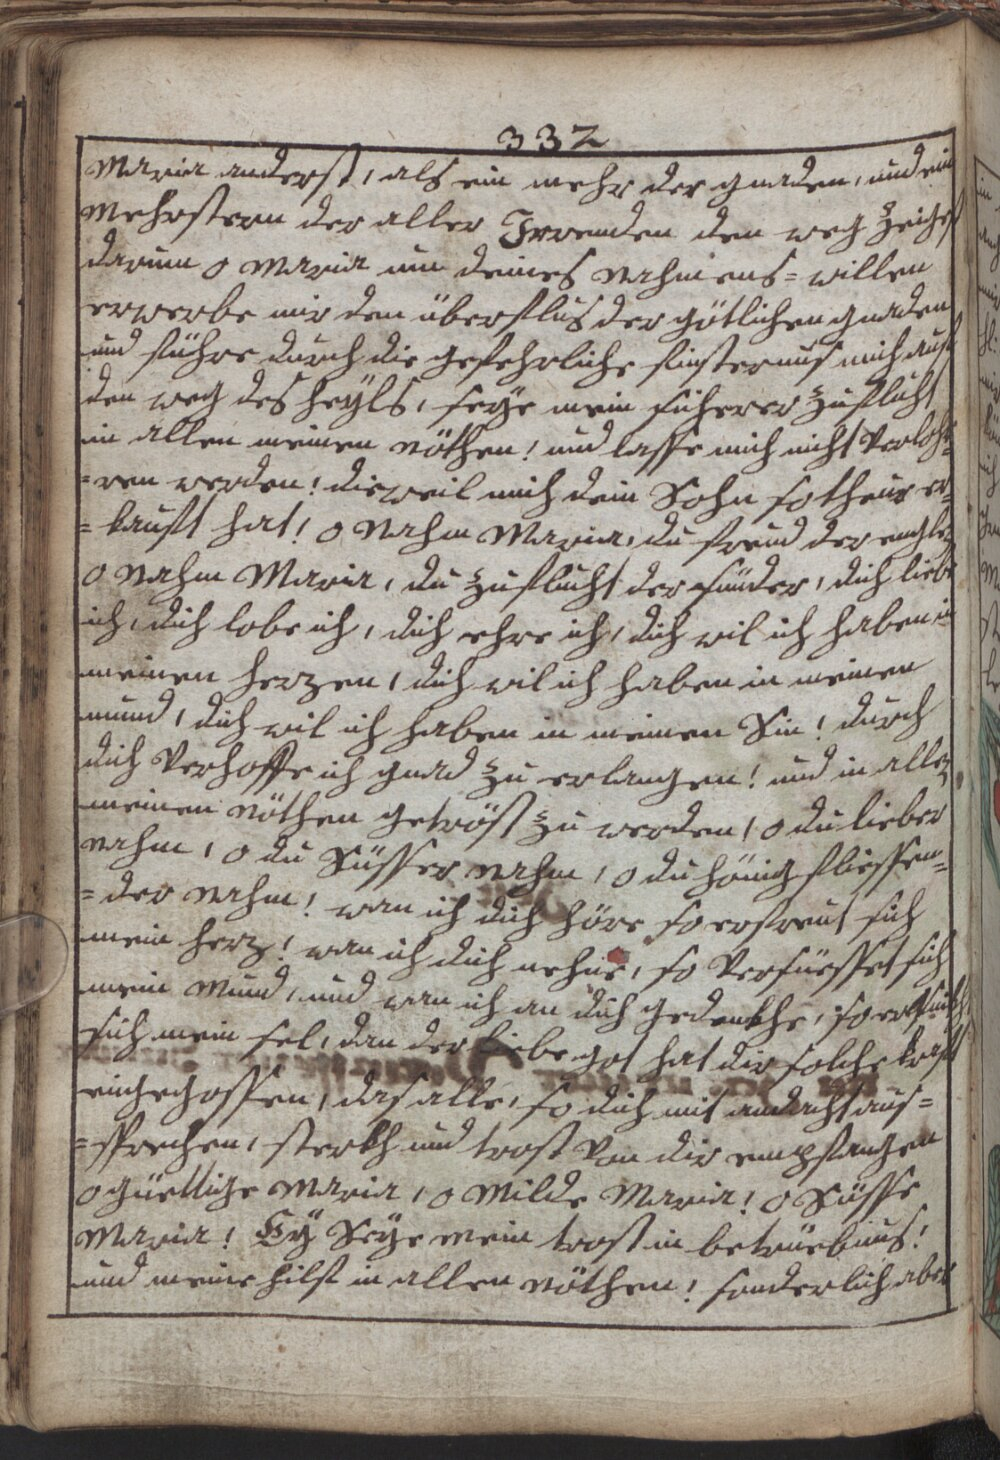 332
Maria anderst, als ein mehr der gnaden, und ein
Mehrstern der aller Irrenden den weg Zeiget
darum o Maria um deines Nahmens= willen
erwerbe mir den überflus der götlichen gnaden
und führe durch die gefehrliche finsternus mich auf
den weg des heyls, seye mein sicherer Zuflucht
in allen meinen nöthen! und lasse mich nicht Verloh=
=ren werden! dieweil mich dein Sohn so theur er=
=kauft hat! o Nahm Maria, du freud der engle,
o Nahm Maria, du Zuflucht der sünder, dich liebe
ich, dich lobe ich, dich ehre ich, dich wil ich haben in
meinen herzen, dich wil ich haben in meinen
mund, dich wil ich haben in meinen Sin! durch
dich Verhoffe ich gnad zu erlangen! und in allen
meinen nöthen getröst zu werden, o du lieber
Nahm, o du Süsser Nahm, o du hönig fliessen=
=der Nahm! wan ich dich höre so erfreut sich
mein herz! wan ich dich nehne, so Versüesset sich
mein Mund, und wan ich an dich gedenkhe, so
sich mein sel, dan der liebe got hat dir solche kraft
eingegossen, das alle, so dich mit andacht aus=
=sprechen, sterkh und trost Von dir empfangen
o güettige Maria, o Milde Maria! o Süsse
Maria! Ey Seye mein trost in betrüebnus!
und meine hilf in allen nöthen! sonderlich aber